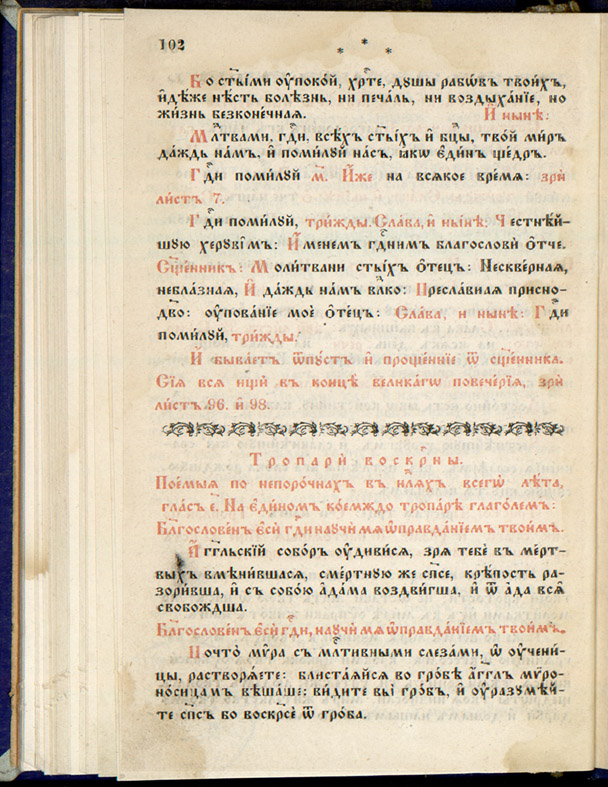 102
* * *
Со ст҃ы́ми ᲂу҆поко́й, хрⷭ҇те́, дꙋ́шы ра̑бъ твои́хъ,
и҆дѣ́же нѣ́сть болѣ́знь, ни печа́ль, ни воздыха́нїе, но
жи́знь безконе́чная. И҆ ны́нѣ:
Мл҃твами, гдⷭ҇и, всѣ́хъ ст҃ы́хъ и҆ бцⷣы, тво́й ми́ръ
да́ждь на́мъ, и҆ поми́лꙋй на́съ, ꙗ҆́кѡ є҆ди́нъ ще́дръ.
Гдⷭ҇и поми́лꙋй м҃. И҆́же на всѧ́кое вре́мѧ: зрѝ
ли́стъ 7.
Гдⷭ҇и поми́лꙋй, три́жды. Сла́ва, и҆ ны́нѣ: Честнѣ́й-
шꙋю херꙋві̑мъ: И҆́менемъ гдⷭ҇нимъ благословѝ ѻ҆́тче.
Сщ҃е́нникъ: Моли́твами ст҃ы́хъ ѻ҆те́цъ: Нескве́рнаѧ,
небла́знаѧ, И҆ да́ждь на́мъ влⷣко: Пресла́внаѧ присно-
дв҃о: ᲂу҆пова́нїе моѐ ѻ҆те́цъ: Сла́ва, и ны́нѣ: Гдⷭ҇и
поми́лꙋй, три́жды.
И҆ быва́етъ ѿпꙋ́стъ и҆ проще́нїе ѿ сщ҃е́нника.
Сїѧ̑ всѧ̑ ищѝ въ концѣ̀ вели́кагѡ повече́рїѧ, зрѝ
ли́стъ 96. и҆ 98.
Тропарѝ воскрⷭ҇ны.
Поє́мыѧ по непоро́чнахъ въ нⷣлѧхъ всегѡ̀ лѣ́та,
гла́съ є҃. На є҆ди́номъ кое́мждо тропарѣ̀ глаго́лемъ:
Блгⷭ҇ове́нъ є҆сѝ гдⷭ҇и наꙋчи́ мѧ ѡ҆правда́нїємъ твои̑мъ.
А҆́гг҃льскїй собо́ръ ᲂу҆диви́сѧ, зрѧ̀ тебѐ въ ме́рт-
выхъ вмѣни́вшасѧ, сме́ртнꙋю же сп҃се, крѣ́пость ра-
зори́вша, и҆ съ собо́ю а҆да́ма воздви́гша, и҆ ѿ а҆́да всѧ̑
свобо́ждша.
Блгⷭ҇ове́нъ є҆сѝ гдⷭ҇и, наꙋчи́ мѧ ѡ҆правда́нїємъ твои̑мъ.
Почто̀ мѵ́ра съ мл҃тивными слеза́ми, ѽ ᲂу҆чени-
цы, растворѧ́ете: блиста́ѧйсѧ во гро́бѣ а҆́гг҃лъ мѵ́ро-
но́сицамъ вѣща́ше: ви́дите вы̀ гро́бъ, и҆ ᲂу҆разꙋмѣ́й-
те сп҃съ бо воскр҃се ѿ гро́ба.